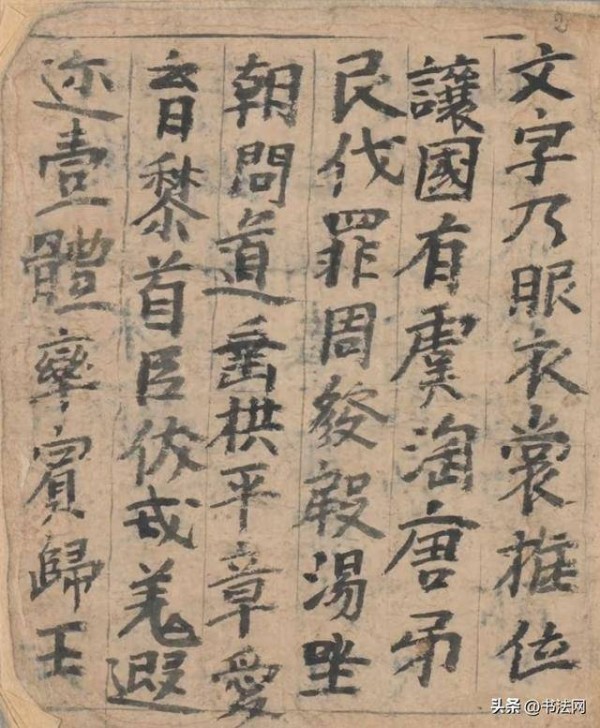 2
文字乃眼衣裳推位
讓國有虞淘唐弔
民伐罪周發殷湯坐
朝問道垂栱平章愛
育黎首臣伏戎羌遐
迩壹體率賓歸王
头条 @书法网